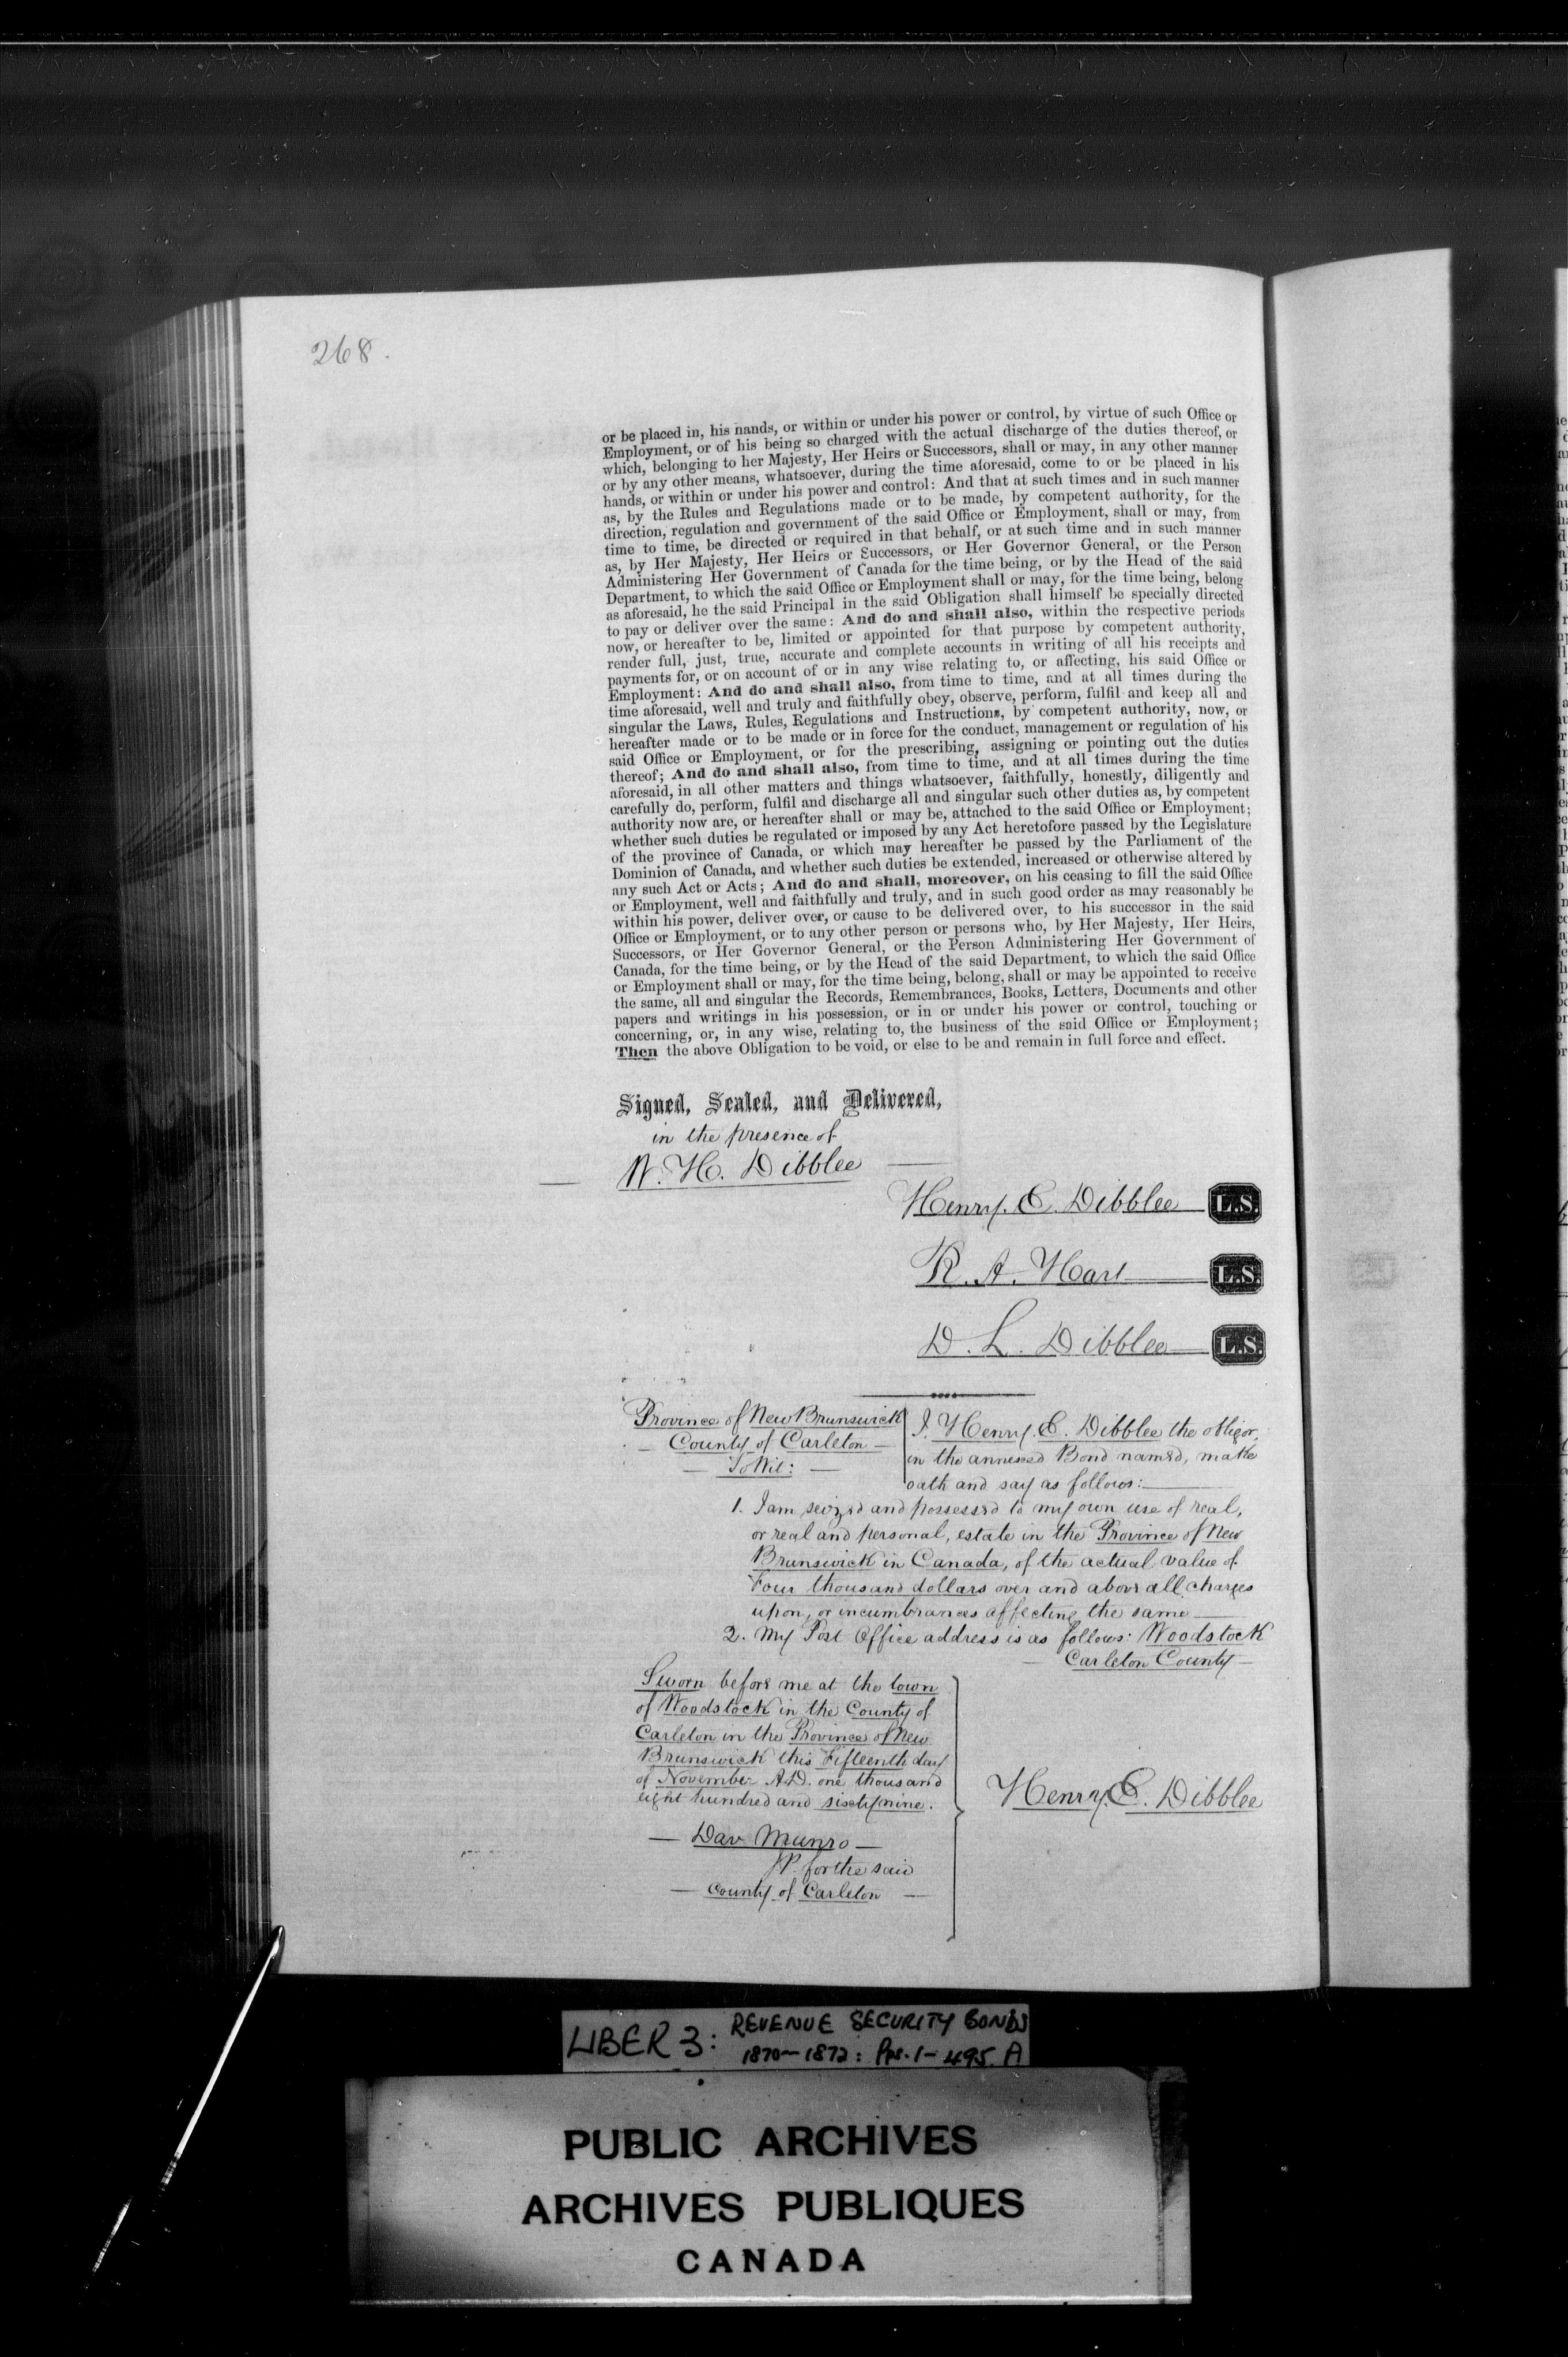 268.
or be placed in, his hands, or within or under his power or control, by virtue of such Office or
Employment, or of his being so charged with the actual discharge of the duties thereof, or
which, belonging to her Majesty, Her Heirs or Successors, shall or may, in any other manner
or by any other means, whatsoever, during the time aforesaid, come to or be placed in his
hands, or within or under his power and control: And that at such times and in such manner
as, by the Rules and Regulations made or to be made, by competent authority, for the
direction, regulation and government of the said Office or Employment, shall or may, from
time to time, be directed or required in that behalf, or at such time and in such manner
as, by Her Majesty, Her Heirs or Successors, or Her Governor General, or the Person
Administering Her Government of Canada for the time being, or by the Head of the said
Department, to which the said Office or Employment shall or may, for the time being, belong
as aforesaid, he the said Principal in the said Obligation shall himself be specially directed
to pay or deliver over the same: And do and shall also, within the respective periods
now, or hereafter to be, limited or appointed for that purpose by competent authority,
render full, just, true, accurate and complete accounts in writing of all his receipts and
payments for, or on account of or in any wise relating to, or affecting, his said Office or
Employment: And do and shall also, from time to time, and at all times during the
time aforesaid, well and truly and faithfully obey, observe, perform, fulfil and keep all and
singular the Laws, Rules, Regulations and Instructions, by competent authority, now, or
hereafter made or to be made or in force for the conduct, management or regulation of his
said Office or Employment, or for the prescribing, assigning or pointing out the duties
thereof; And do and shall also, from time to time, and at all times during the time
aforesaid, in all other matters and things whatsoever, faithfully, honestly, diligently and
carefully do, perform, fulfil and discharge all and singular such other duties as, by competent
authority now are, or hereafter shall or may be, attached to the said Office or Employment;
whether such duties be regulated or imposed by any Act heretofore passed by the Legislature
of the province of Canada, or which may hereafter be passed by the Parliament of the
Dominion of Canada, and whether such duties be extended, increased or otherwise altered by
any such Act or Acts; And do and shall, moreover, on his ceasing to fill the said Office
or Employment, well and faithfully and truly, and in such good order as may reasonably be
within his power, deliver over, or cause to be delivered over, to his successor in the said
Office or Employment, or to any other person or persons who, by Her Majesty, Her Heirs,
Successors, or Her Governor General, or the Person Administering Her Government of
Canada, for the time being, or by the Head of the said Department, to which the said Office
or Employment shall or may, for the time being, belong, shall or may be appointed to receive
the same, all and singular the Records, Remembrances, Books, Letters, Documents and other
papers and writings in his possession, or in or under his power or control, touching or
concerning, or, in any wise, relating to, the business of the said Office or Employment;
Then the above Obligation to be void, or else to be and remain in full force and effect.
Signed, Sealed, and Delivered,
in the presence of
W. H. Dibblee
Henry. E. Dibblee L.S.
R. A. Hart L.S.
D. L. Dibblee L.S.
Province of New Brunswick
County of Carleton
To Wit:
I. Henry. E. Dibblee the obligor,
in the annexed Bond named, make
oath and say as follows:
1. I am seized and possessed to my own use of real,
or real and personal, estate in the Province of New
Brunswick in Canada, of the actual value of
Four thousand dollars over and above all charges
upon, or incumbrances affecting the same
2. My Post Office address is as follows: Woodstock
Carleton County
Sworn before me at the town
of Woodstock in the County of
Carleton in the Province of New
Brunswick this Fifteenth day
of November A.D. one thousand
eight hundred and sixty nine.
Dav Munro
JP. for the said
County of Carleton
Henry. E. Dibblee
LIBER 3: REVENUE SECURITY BONDS
1870-1872: Pps. 1-495. A
PUBLIC ARCHIVES
ARCHIVES PUBLIQUES
CANADA